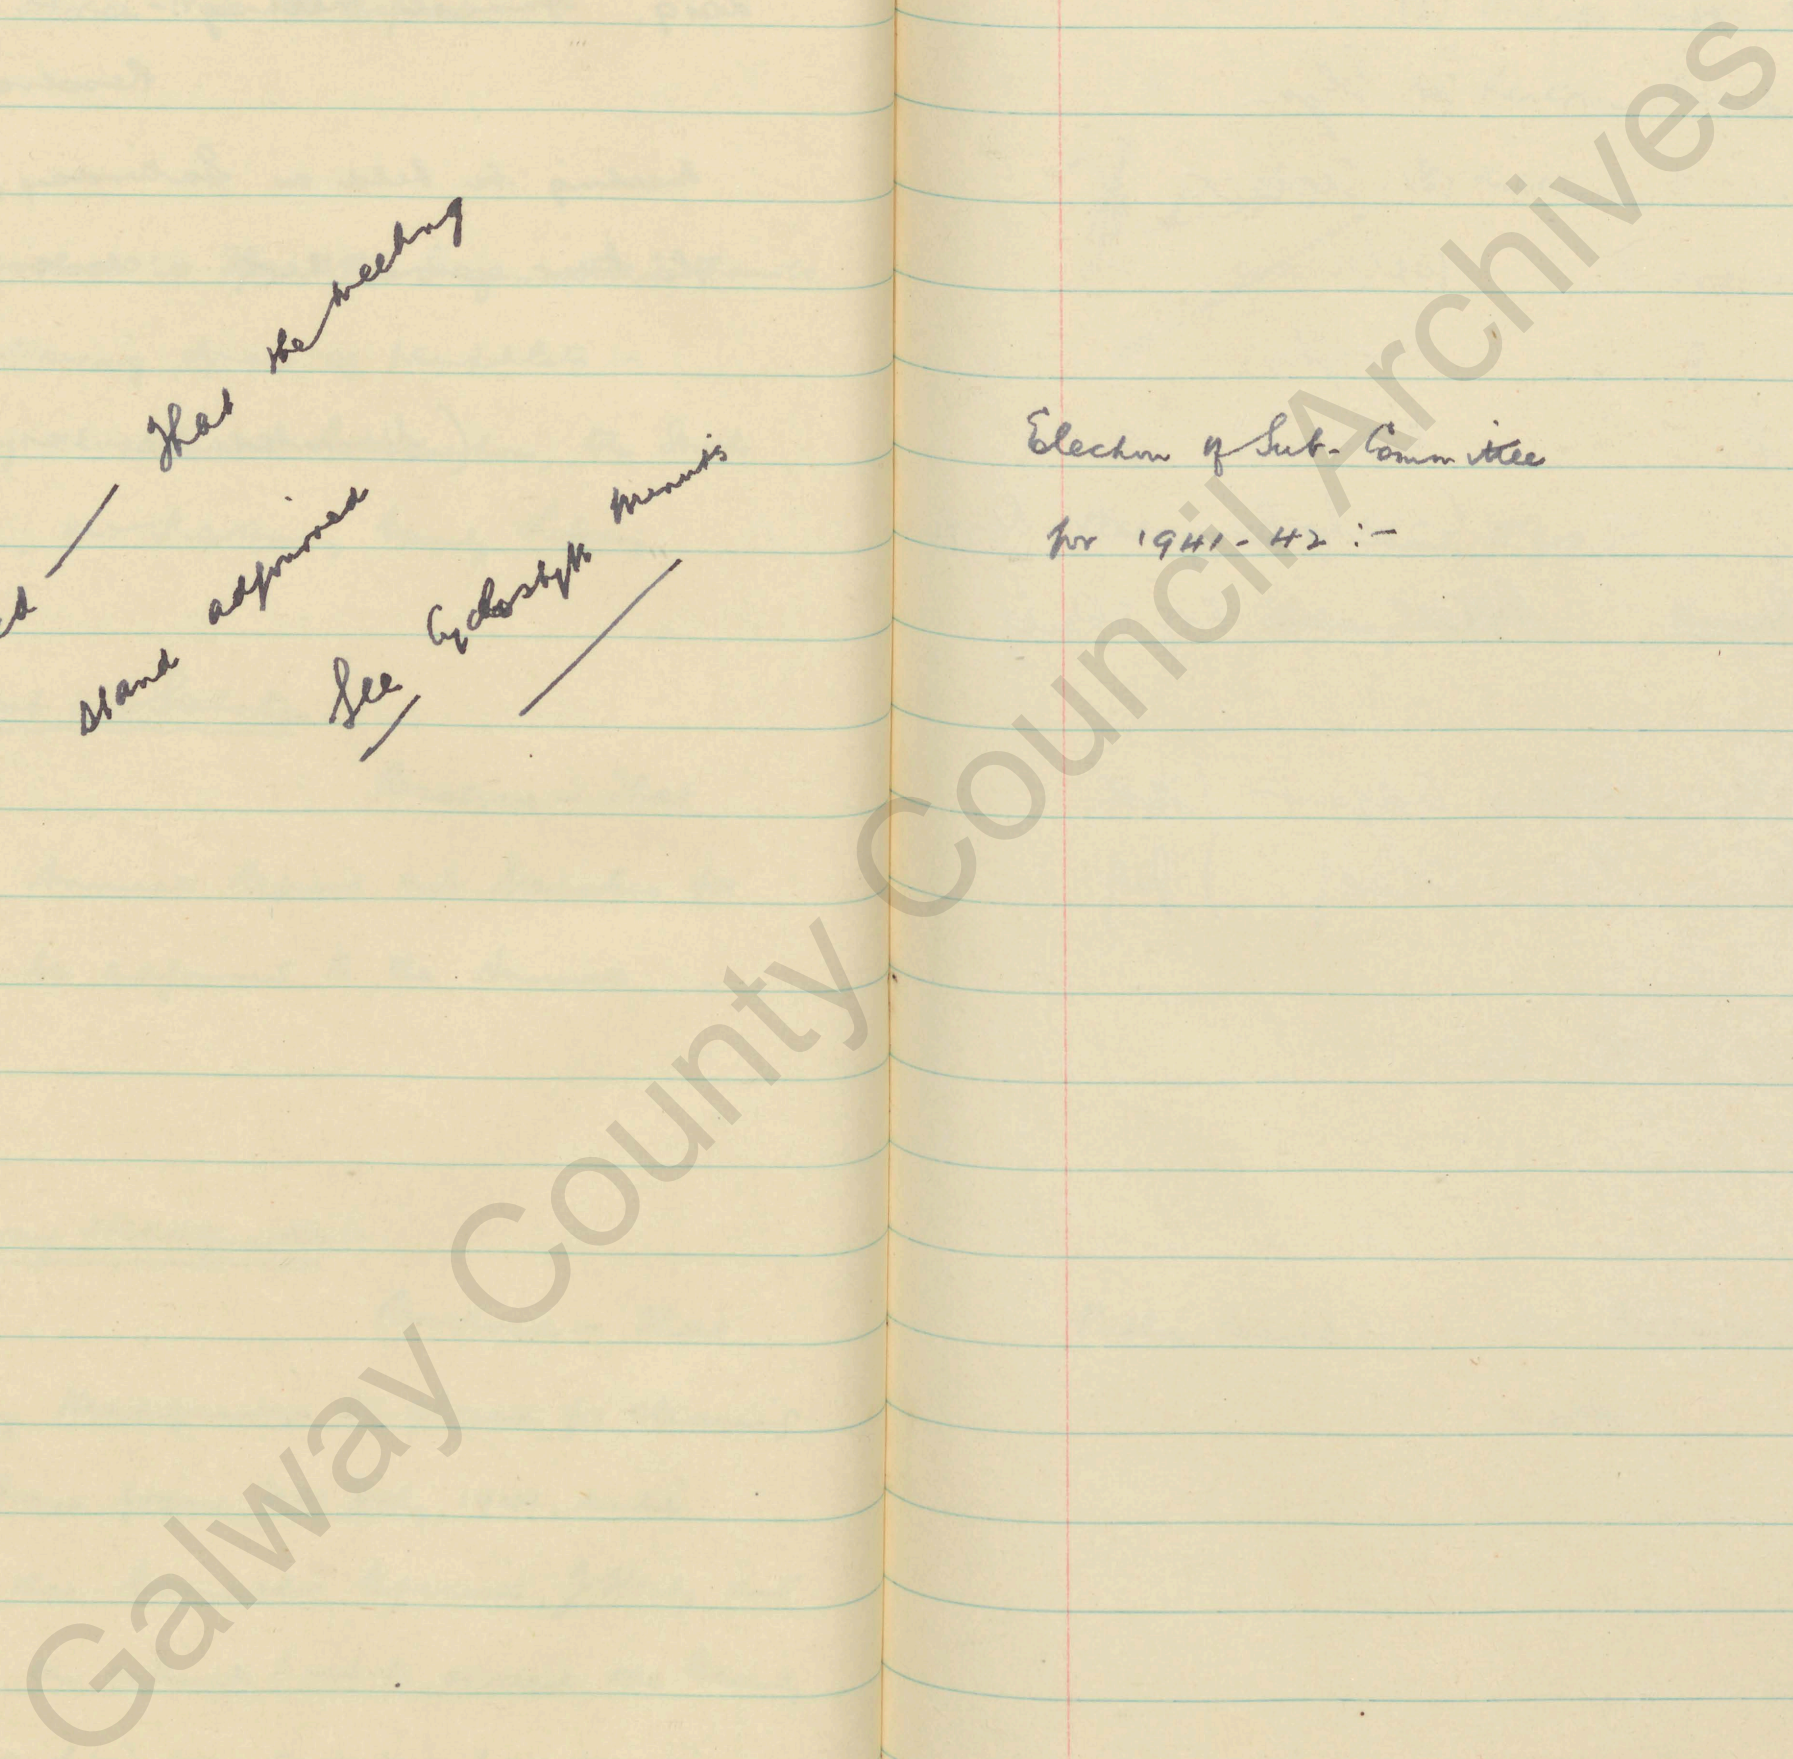 ed — That the meeting
stand adjourned
See Cyclostyle Minutes
Election of Sub-Committee
for 1941-42 :-
Galway County Council Archives